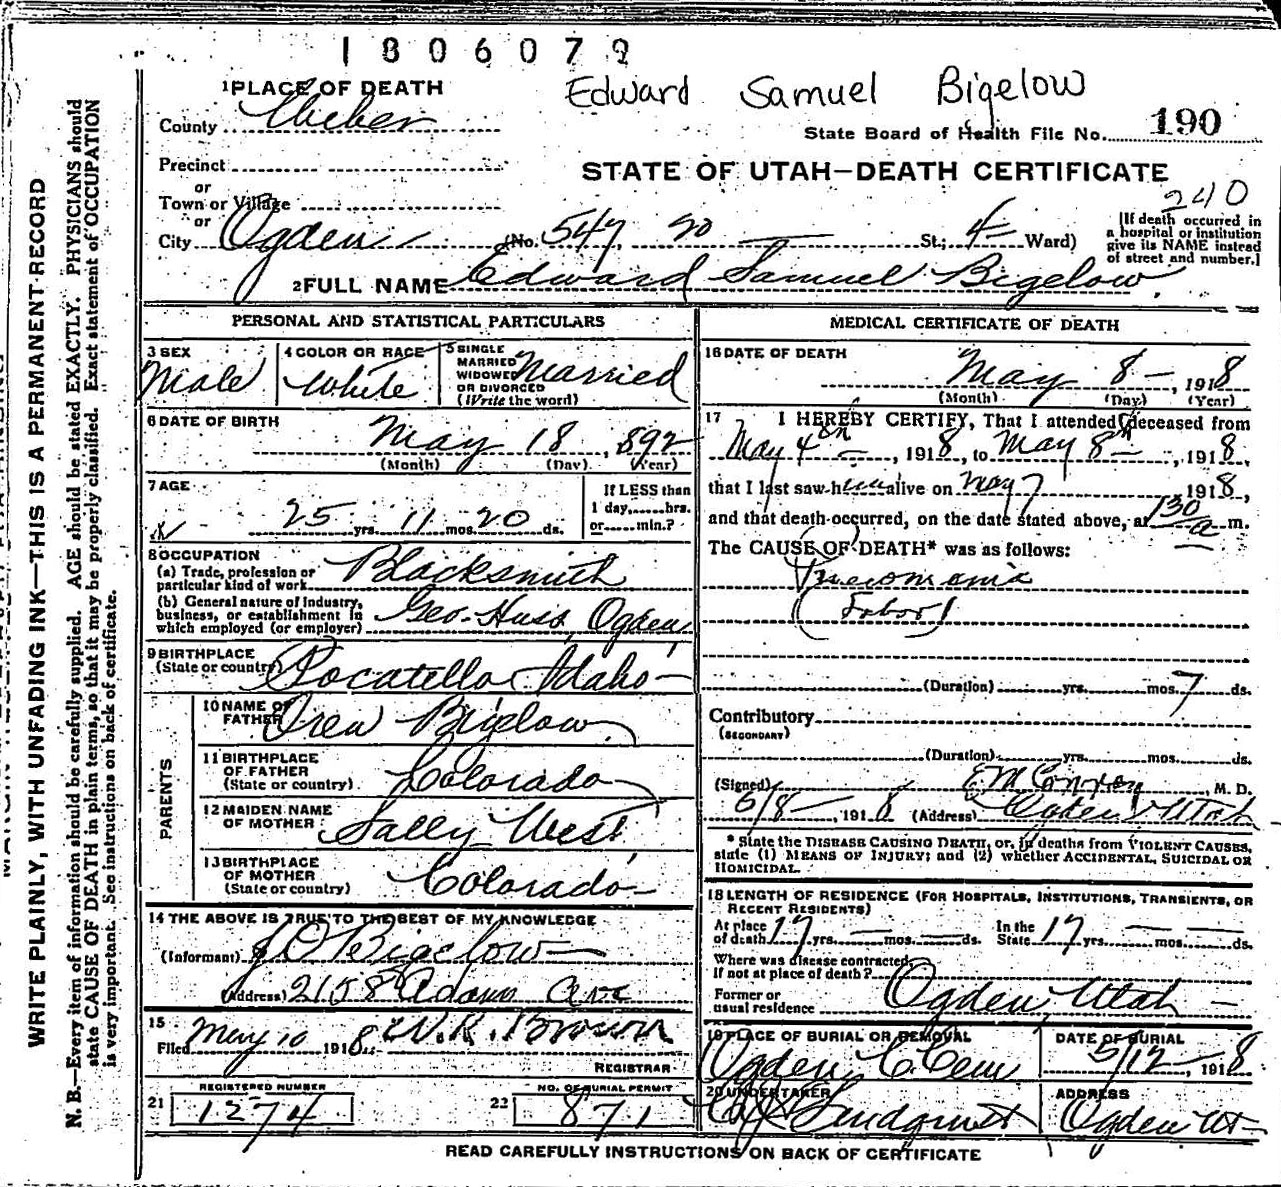 1806079
Edward Samuel Bigelow
1 PLACE OF DEATH
County Weber
State Board of Health File No. 190
Precinct
STATE OF UTAH—DEATH CERTIFICATE
or
Town or Village
240
or
City Ogden (No. 547, 20 St.; 4 Ward)
[If death occurred in
a hospital or institution
give its NAME instead
of street and number.]
2 FULL NAME Edward Samuel Bigelow
PERSONAL AND STATISTICAL PARTICULARS
3 SEX
Male
4 COLOR OR RACE
White
5 SINGLE
MARRIED
WIDOWED
OR DIVORCED
(Write the word)
Married
6 DATE OF BIRTH
May 18, 892
(Month) (Day) (Year)
7 AGE
25 yrs. 11 mos. 20 ds.
If LESS than
1 day,......hrs.
or......min.?
8 OCCUPATION
(a) Trade, profession or
particular kind of work Blacksmith
(b) General nature of industry,
business, or establishment in
which employed (or employer) Geo. Huss, Ogden,
9 BIRTHPLACE
(State or country) Pocatello Idaho
PARENTS
10 NAME OF
FATHER Oren Bigelow
11 BIRTHPLACE
OF FATHER
(State or country) Colorado
12 MAIDEN NAME
OF MOTHER Sally West
13 BIRTHPLACE
OF MOTHER
(State or country) Colorado
14 THE ABOVE IS TRUE TO THE BEST OF MY KNOWLEDGE
(Informant) J O Bigelow
(Address) 2158 Adams Ave
15
Filed May 10 1918 W. R. Brown
REGISTRAR
REGISTERED NUMBER
21 1274
NO. OF BURIAL PERMIT
22 871
MEDICAL CERTIFICATE OF DEATH
16 DATE OF DEATH
May 8, 1918
(Month) (Day) (Year)
17 I HEREBY CERTIFY, That I attended deceased from
May 4th, 1918, to May 8th, 1918,
that I last saw him alive on May 7 1918,
and that death occurred, on the date stated above, at 130 a m.
The CAUSE OF DEATH* was as follows:
Pneumonia
(Lobar)
(Duration) yrs. mos. 7 ds.
Contributory
(SECONDARY)
(Duration) yrs. mos. ds.
(Signed) E. M. Conroy, M. D.
5/8, 1918 (Address) Ogden Utah
* State the DISEASE CAUSING DEATH, or, in deaths from VIOLENT CAUSES,
state (1) MEANS OF INJURY; and (2) whether ACCIDENTAL, SUICIDAL OR
HOMICIDAL.
18 LENGTH OF RESIDENCE (FOR HOSPITALS, INSTITUTIONS, TRANSIENTS, OR
RECENT RESIDENTS)
At place
of death 17 yrs. mos. ds.
In the
State 17 yrs. mos. ds.
Where was disease contracted,
if not at place of death?
Former or
usual residence Ogden, Utah
19 PLACE OF BURIAL OR REMOVAL
Ogden C. Cem
DATE OF BURIAL
5/12, 1918
20 UNDERTAKER
Lindquist
ADDRESS
Ogden Ut
READ CAREFULLY INSTRUCTIONS ON BACK OF CERTIFICATE
WRITE PLAINLY, WITH UNFADING INK—THIS IS A PERMANENT RECORD
N. B.—Every item of information should be carefully supplied. AGE should be stated EXACTLY. PHYSICIANS should
state CAUSE OF DEATH in plain terms, so that it may be properly classified. Exact statement of OCCUPATION
is very important. See instructions on back of certificate.